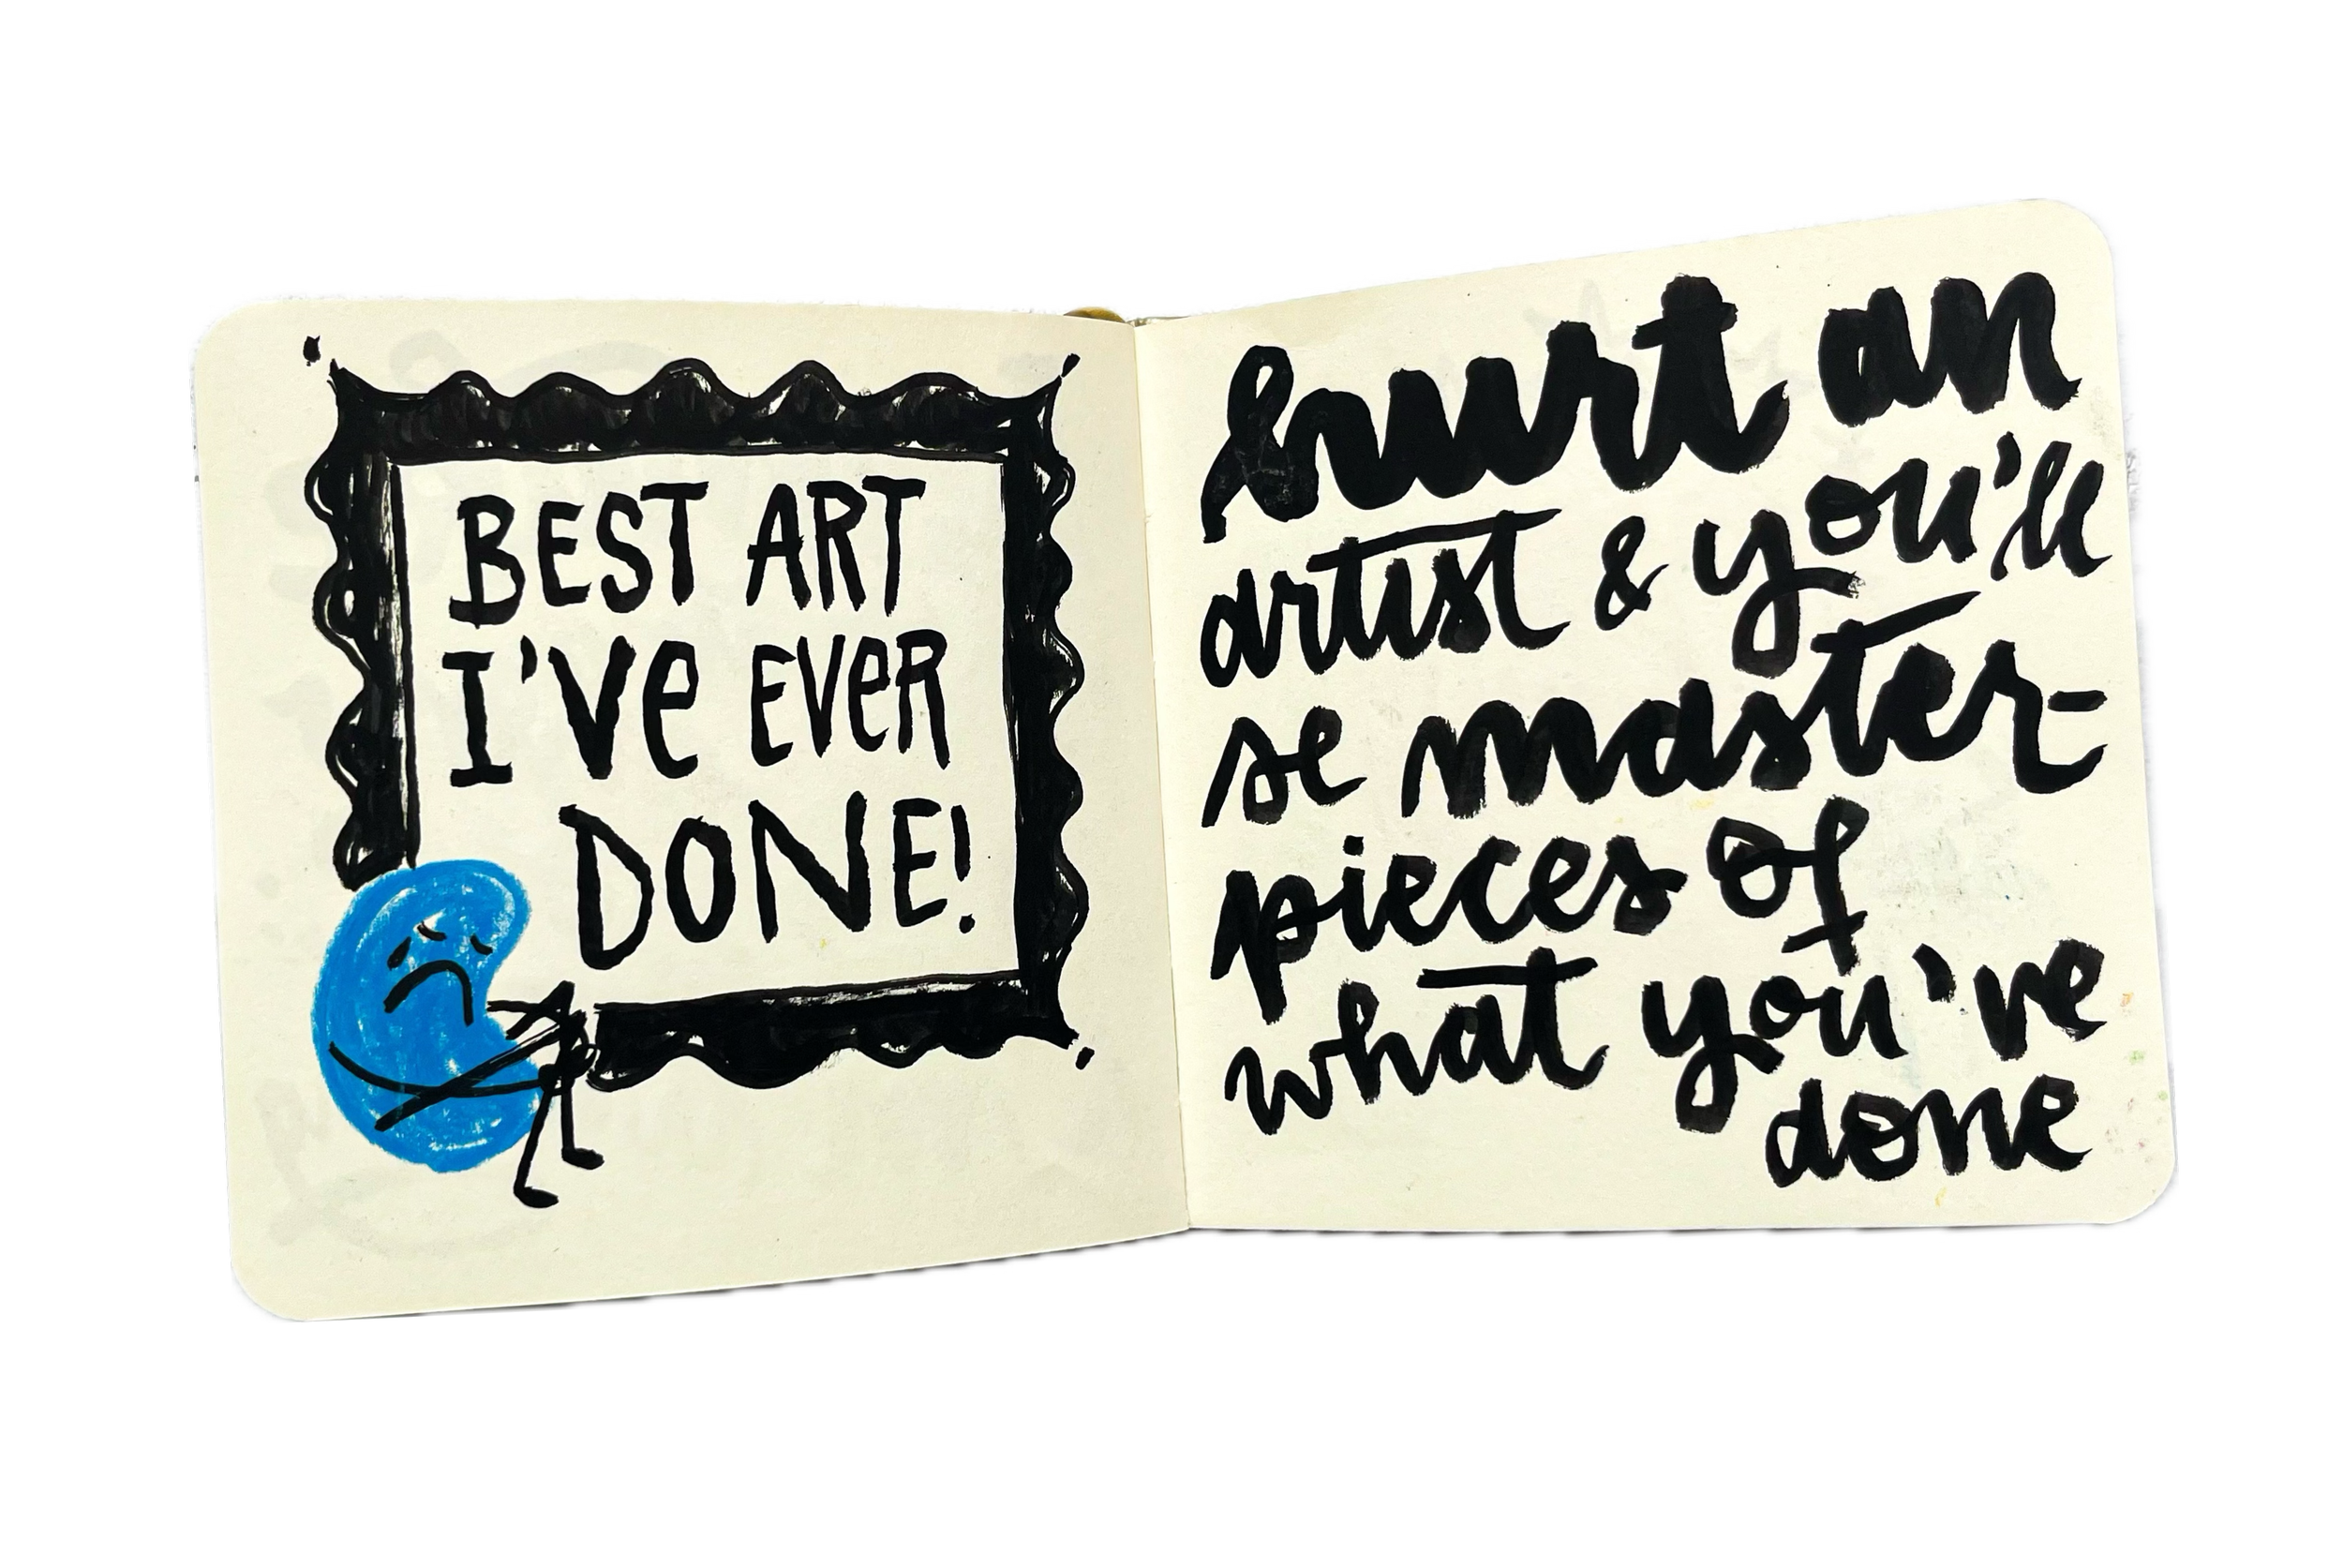 BEST ART
I'Ve EVeR
DONE!
hurt an
artist & you'll
se master-
pieces of
what you've
done